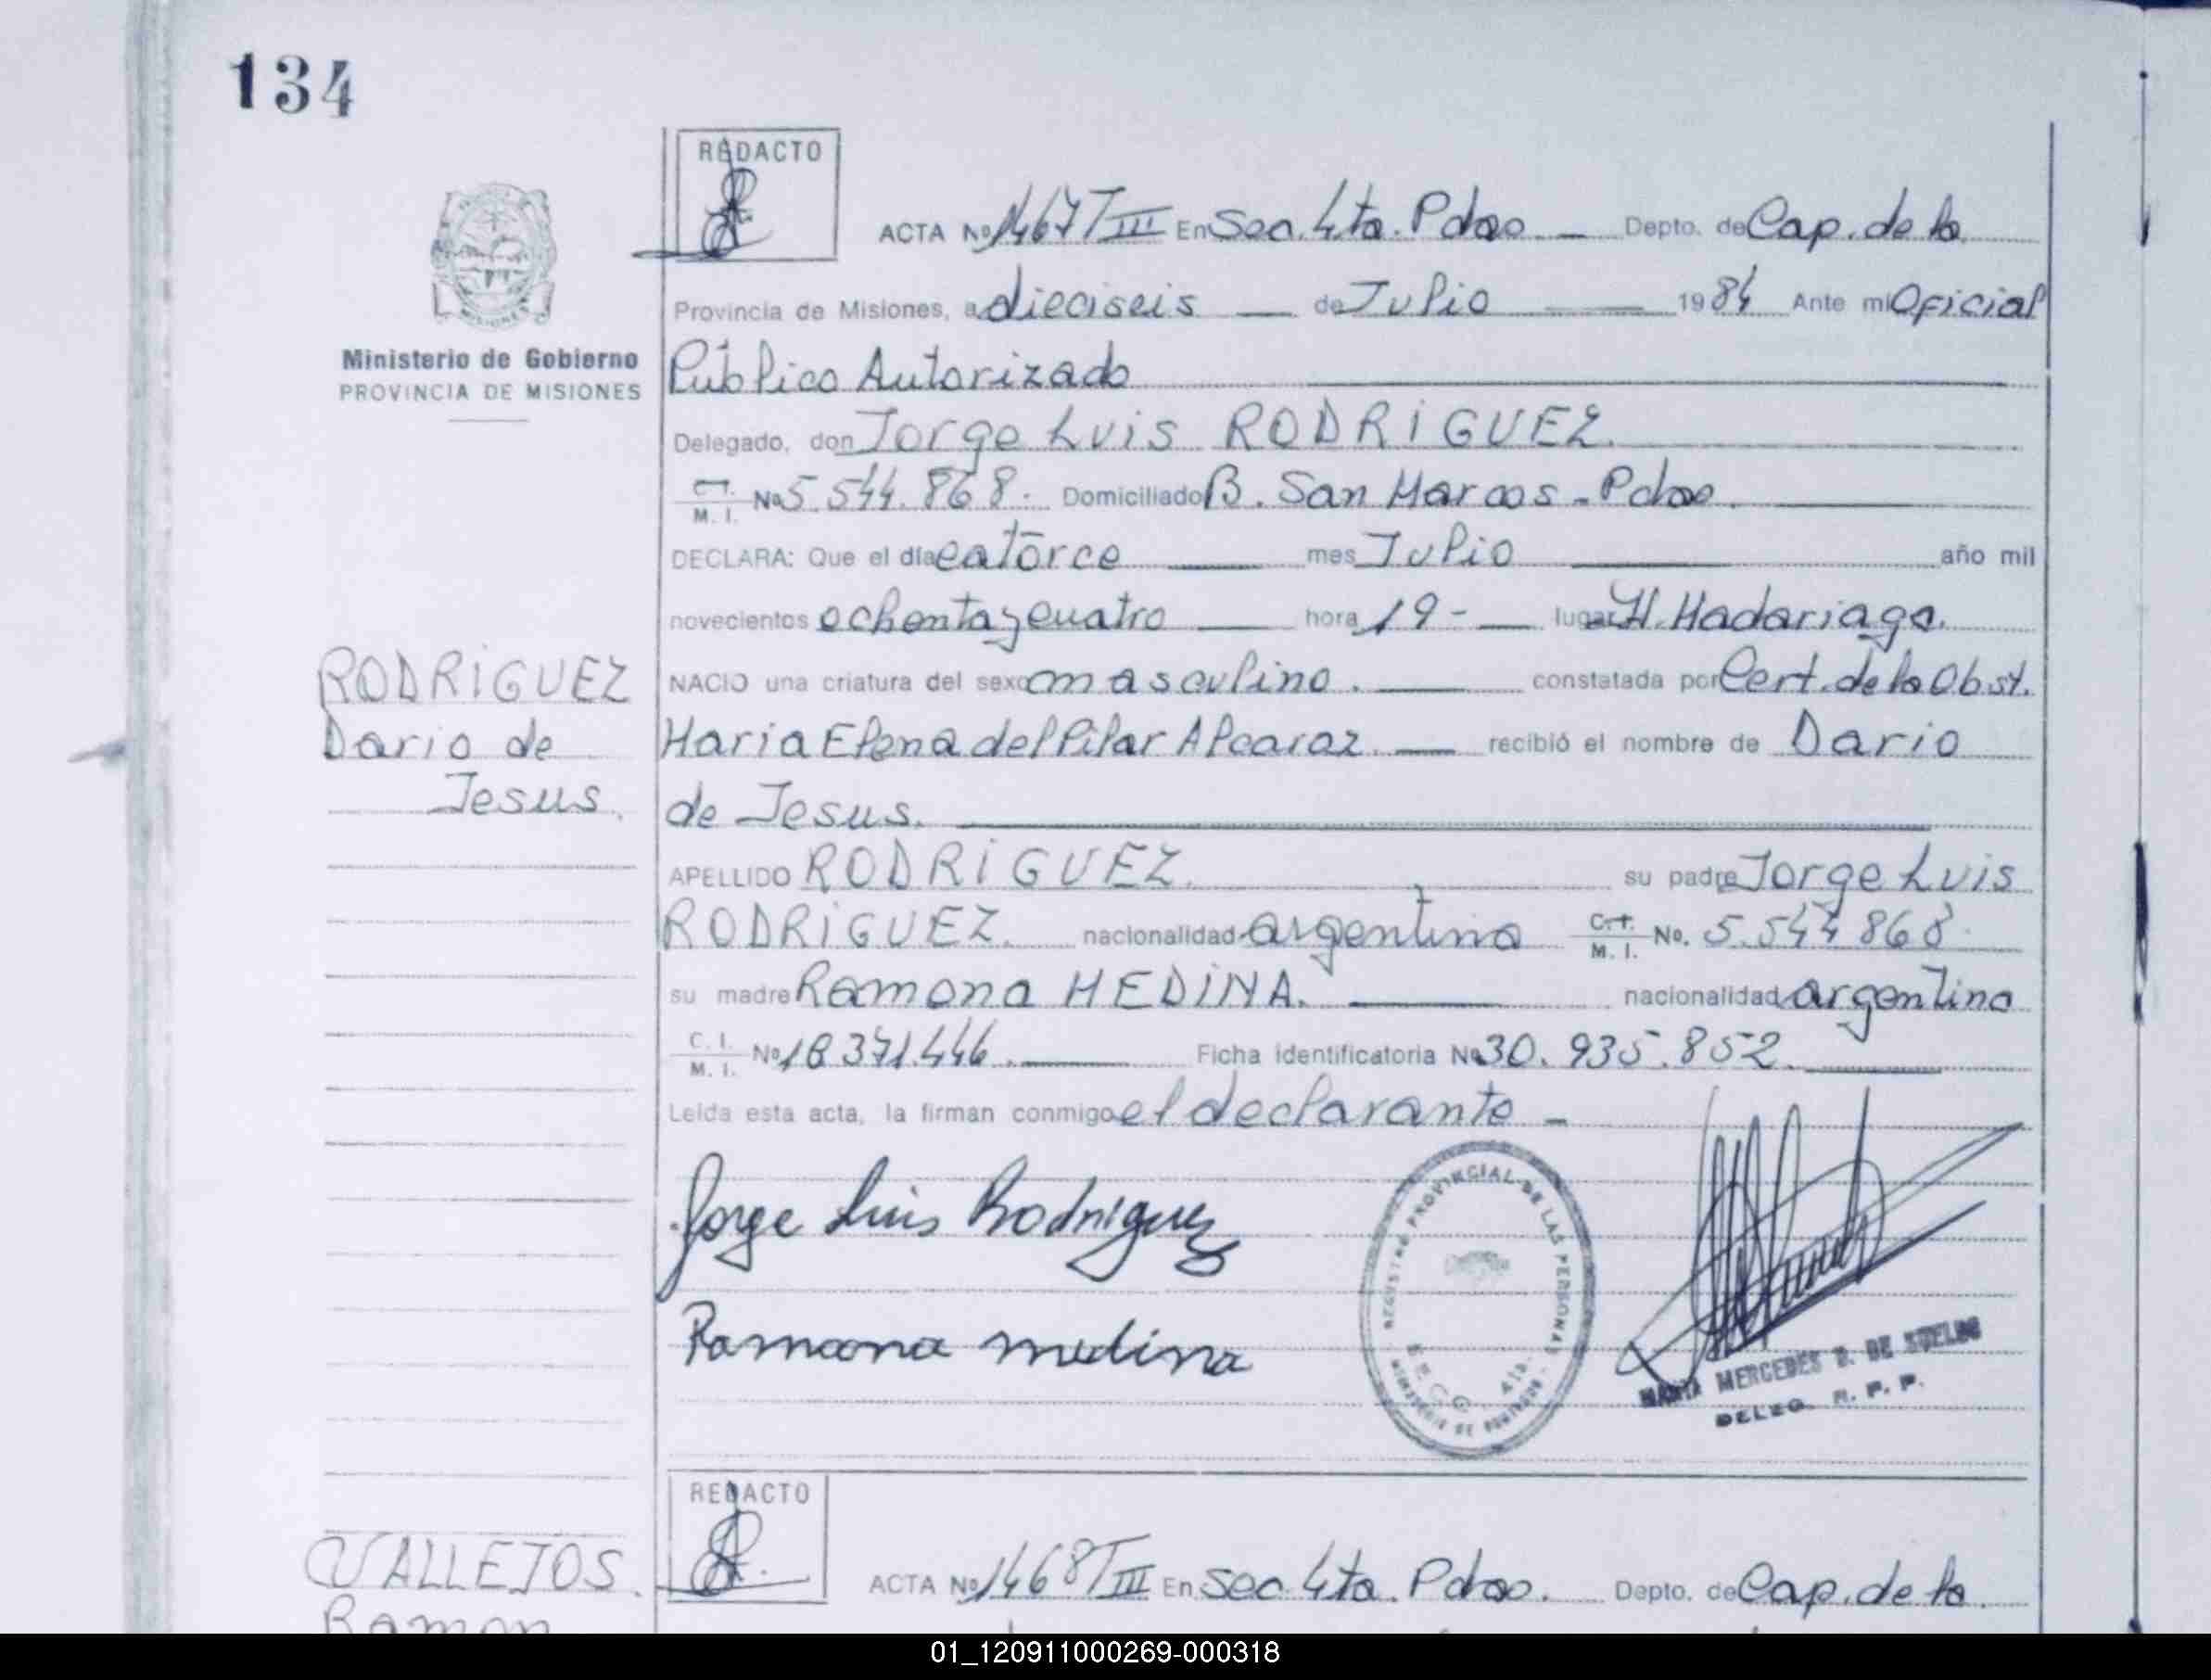 134
REDACTO
ACTA Nº 1467 T III En Sec. 4ta. Pdas Depto. de Cap. de la
Provincia de Misiones, a dieciseis de Julio 1984 Ante mi Oficial
Ministerio de Gobierno
PROVINCIA DE MISIONES
Público Autorizado
Delegado, don Jorge Luis RODRIGUEZ.
M. I. Nº 5.544.868. Domiciliado B. San Marcos - Pdas.
DECLARA: Que el día catorce mes Julio año mil
novecientos ochenta y cuatro hora 19 - lugar H. Madariaga.
NACIO una criatura del sexo masculino. constatada por Cert. de la Obst.
RODRIGUEZ
Dario de
Jesus.
Maria Elena del Pilar Alcaraz. recibió el nombre de Dario
de Jesus.
APELLIDO RODRIGUEZ. su padre Jorge Luis
RODRIGUEZ. nacionalidad argentina C.I. M. I. No. 5.544 868.
su madre Ramona MEDINA. nacionalidad argentina
C. I. M. I. Nº 18 371.446. Ficha identificatoria Nº 30.935.852.
Leída esta acta, la firman conmigo el declarante -
Jorge Luis Rodriguez
Ramona medina
REGISTRO PROVINCIAL DE LAS PERSONAS
MINISTERIO DE GOBIERNO
MARIA MERCEDES D. DE SUELDO
DELEG. R. P. P.
REDACTO
VALLEJOS.
Ramon
ACTA Nº 1468 T III En Sec. 4ta. Pdas. Depto. de Cap. de la
01_120911000269-000318